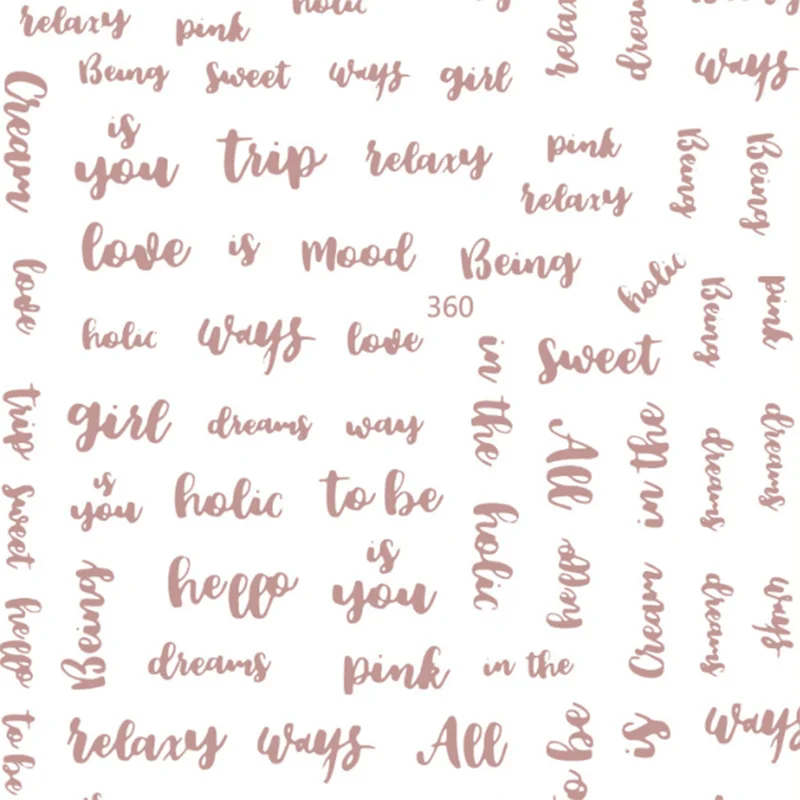 holic
relaxy pink
Being sweet ways girl
relaxy
dreams
ways
Cream
is
you
trip relaxy
pink
relaxy
Being
Being
love is Mood Being
holic
love
360
holic ways love
sweet
Being
pink
in the
trip
girl dreams way
All
in the
dreams
dreams
is
you
holic to be
sweet
holic
hello
is
you
hello
Being
hello
Cream
dreams
ways
dreams pink in the
to be
relaxy ways All
to be
is
ways